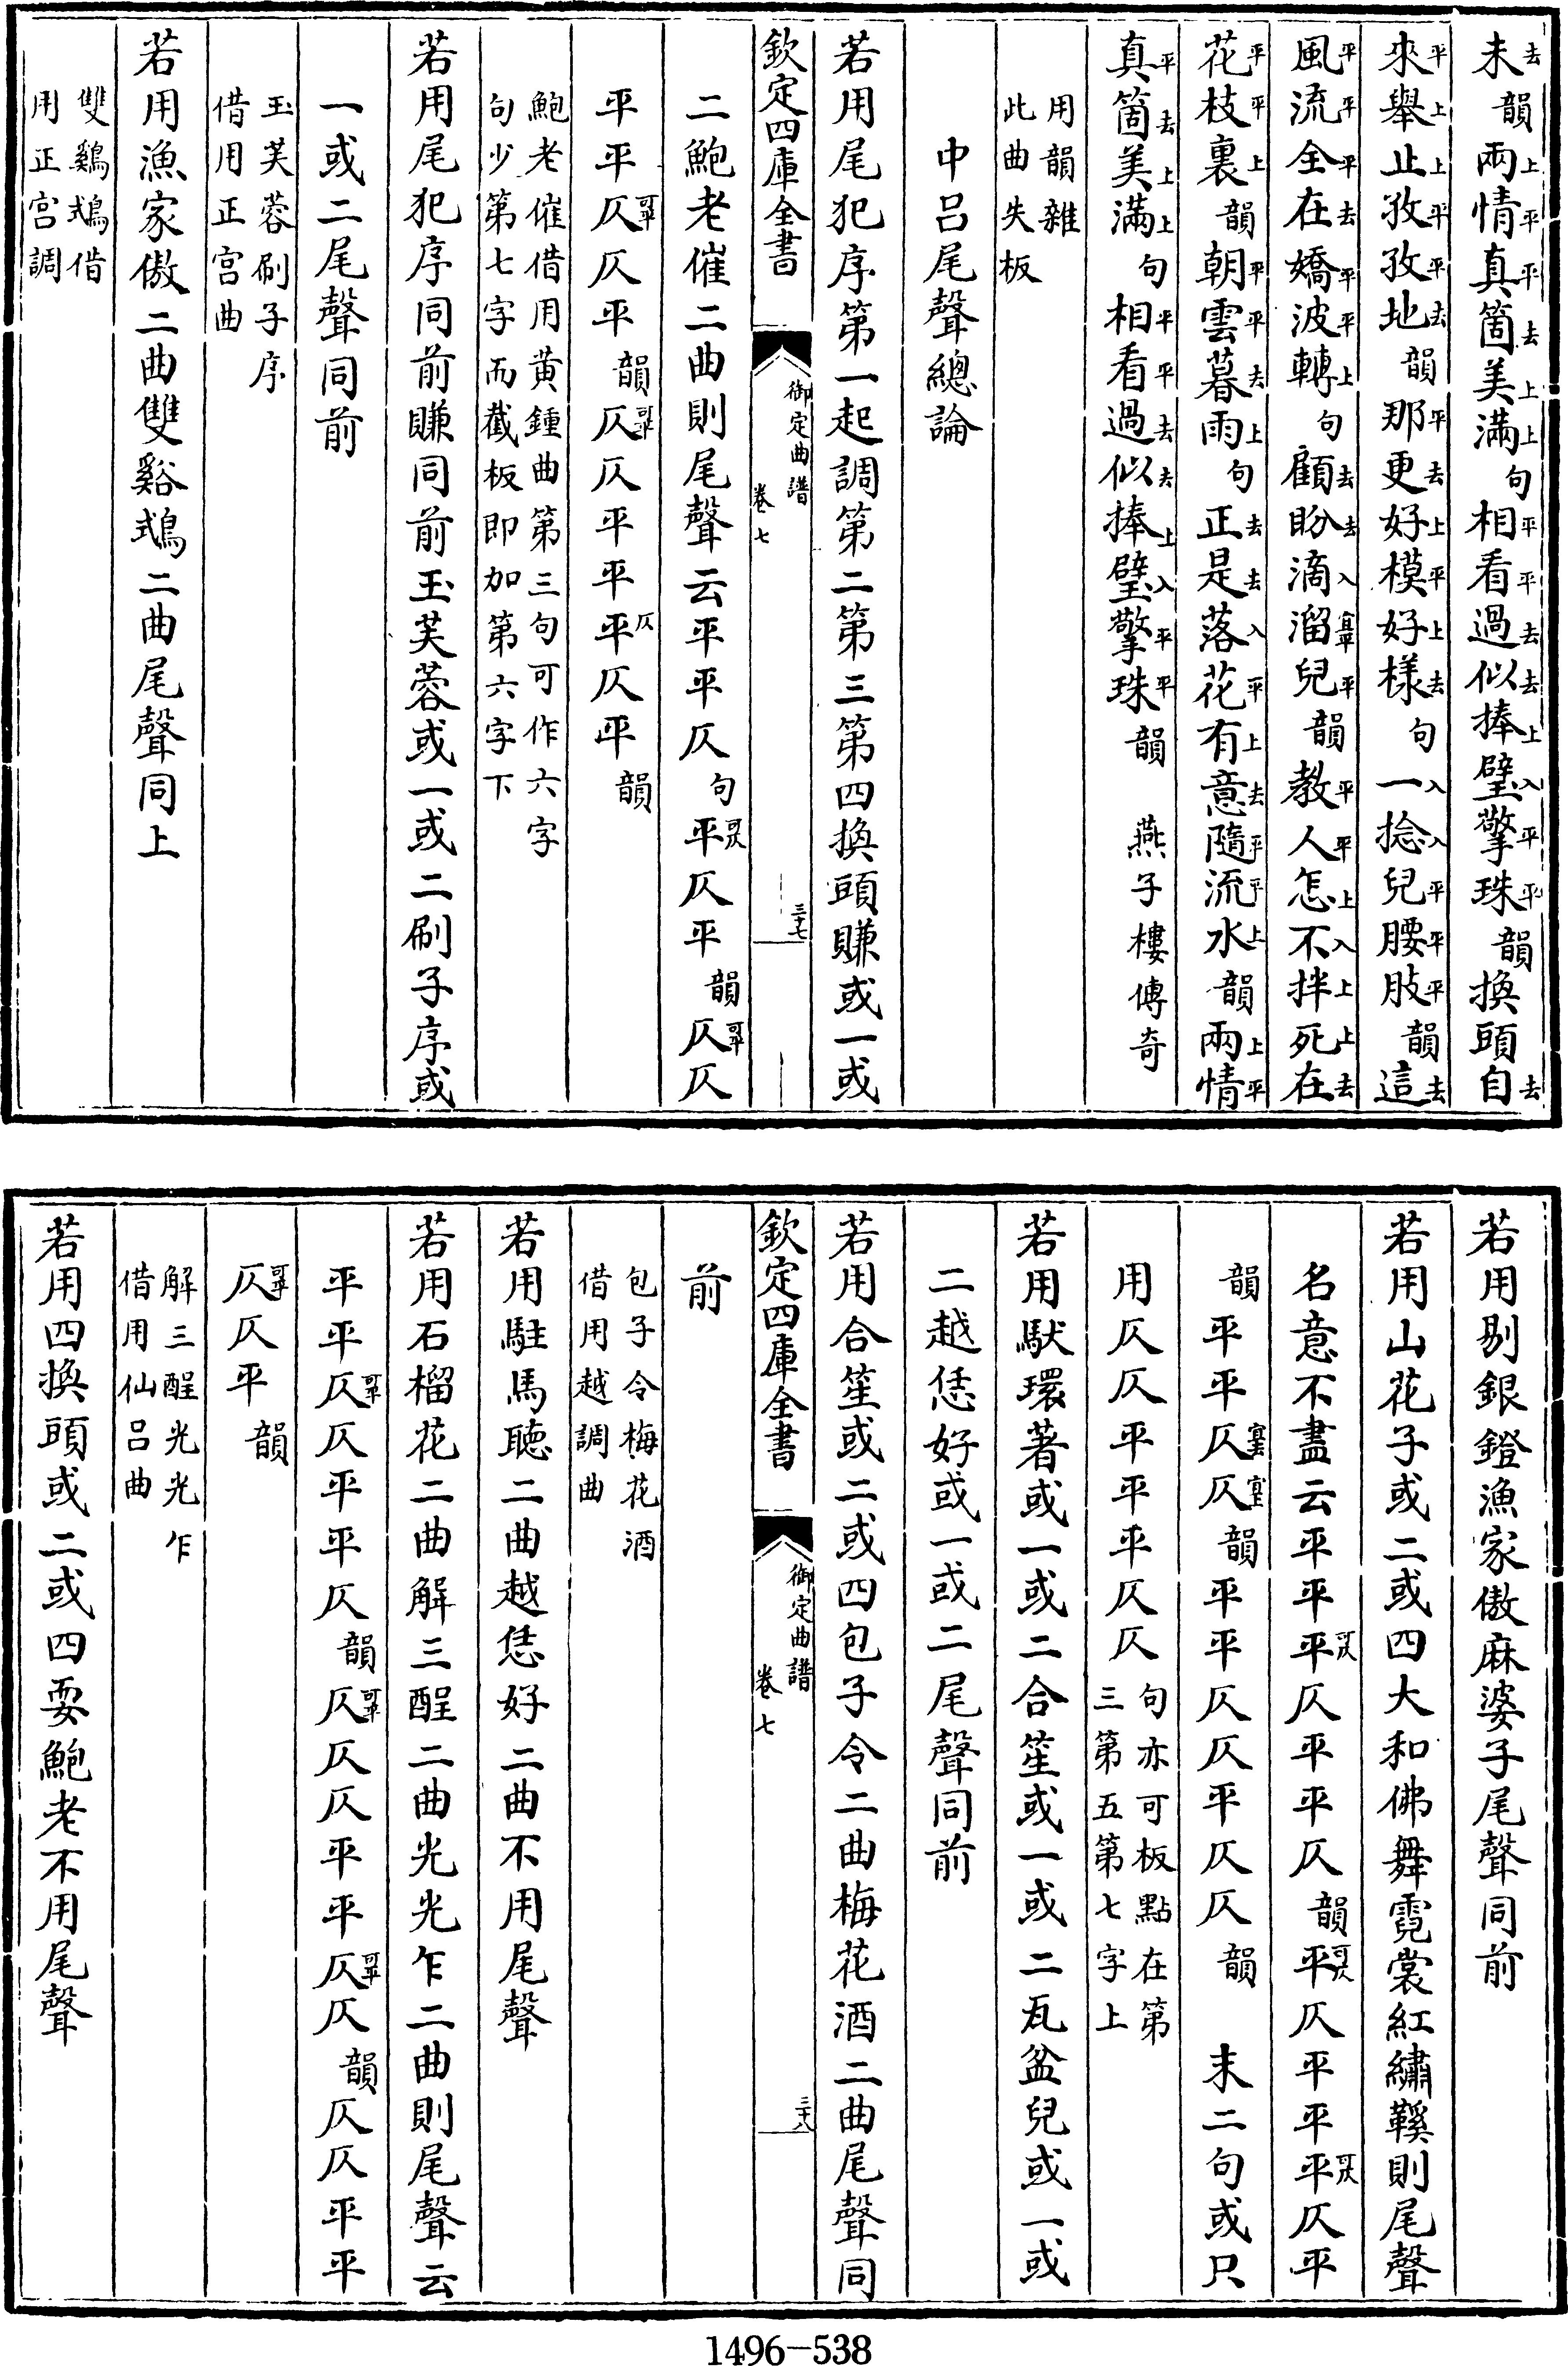 未去韻兩上情平真平箇去美上滿上句相平看平過去似去捧上璧入擎平珠平韻換頭自去
來平舉上止上孜平孜平地去韻那平更去好上模平好上樣去句一入捻入兒平腰平肢平韻這去
風平流平全平在去嬌平波平轉上句顧去盼去滴入溜兒平韻教平人平怎上不入拌上死上在去
花平枝平裏上韻朝平雲平暮去雨上句正去是去落入花平有上意去隨平流平水上韻兩上情平
真平箇去美上滿上句相平看平過去似去捧上璧入擎平珠平韻　燕子樓傳奇
用韻雜
此曲失板
中呂尾聲總論
若用尾犯序第一起調第二第三第四換頭賺或一或
欽定四庫全書
御定曲譜
卷七
三十七
二鮑老催二曲則尾聲云平平平仄句平可仄仄平韻仄可平仄
平平仄可平仄平韻仄可平仄平平平仄仄平韻
鮑老催借用黃鍾曲第三句可作六字
句少第七字而截板即加第六字下
若用尾犯序同前賺同前玉芙蓉或一或二刷子序或
一或二尾聲同前
玉芙蓉刷子序
借用正宮曲
若用漁家傲二曲雙谿鵡二曲尾聲同上
雙鸂鵡借
用正宮調
若用剔銀鐙漁家傲麻婆子尾聲同前
若用山花子或二或四大和佛舞霓裳紅繡鞵則尾聲
名意不盡云平平平可仄仄平平仄韻平可仄仄平平平可仄仄平
韻平平仄仄韻平平仄仄平仄仄韻　末二句或只
用仄仄平平平仄仄句亦可板點在第
三第五第七字上
若用馱環著或一或二合笙或一或二瓦盆兒或一或
二越恁好或一或二尾聲同前
若用合笙或二或四包子令二曲梅花酒二曲尾聲同
欽定四庫全書
御定曲譜
卷七
三十八
前
包子令梅花酒
借用越調曲
若用駐馬聽二曲越恁好二曲不用尾聲
若用石榴花二曲解三酲二曲光光乍二曲則尾聲云
平平仄可平仄平平仄韻仄可平仄仄平平仄可平仄韻仄仄平平
仄可平仄平韻
解三酲光光乍
借用仙呂曲
若用四換頭或二或四耍鮑老不用尾聲
1496-538